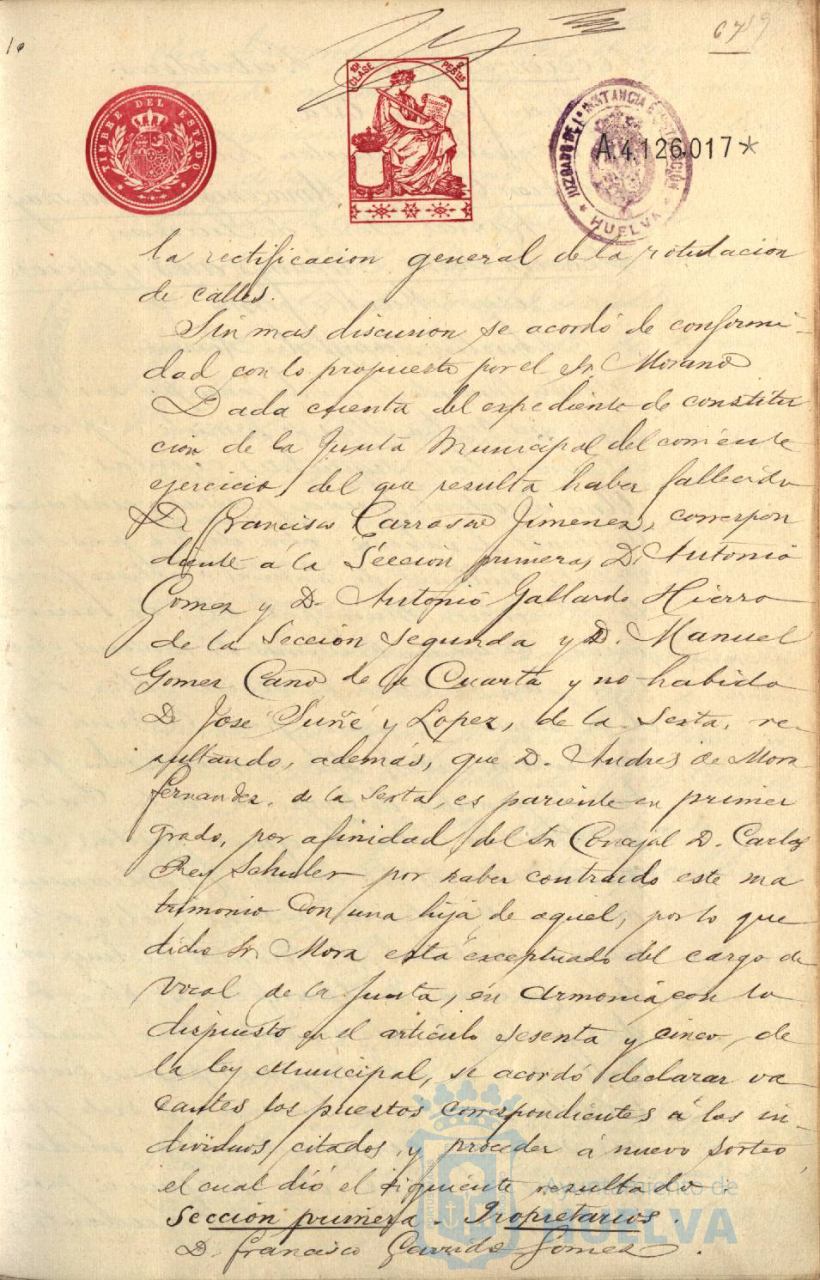 1º
6719
TIMBRE DEL ESTADO
10ª CLASE 2 PESETAS
JUZGADO DE 1ª INSTANCIA E INSTRUCCIÓN
* HUELVA *
A.4.126.017*
la rectificacion general de la rotulacion
de calles.
Sin mas discusion se acordó de conformi-
dad con lo propuesto por el Sr. Morano
Dada cuenta del expediente de constitu
cion de la Junta Municipal del corriente
ejercicio, del que resulta haber fallecido
D. Francisco Carrasco Jimenez, correspon
diente á la Sección primera, D. Antonio
Gomez y D. Antonio Gallardo Hierro
de la Sección Segunda y D. Manuel
Gomez Cano de la Cuarta y no habido
D. José Suñé y Lopez, de la Sexta, re-
sultando, además, que D. Andrés de Mora
Fernandez, de la Sexta, es pariente en primer
grado, por afinidad del Sr. Concejal D. Carlos
Rey Schuler por haber contraido este ma
trimonio con una hija de aquel, por lo que
dicho Sr. Mora está exceptuado del cargo de
vocal de la Junta, en armonía con lo
dispuesto en el artículo sesenta y cinco, de
la ley Municipal, se acordó declarar va-
cantes los puestos correspondientes á los in-
dividuos citados, y proceder á nuevo sorteo
el cual dió el siguiente resultado:
Sección primera. Propietarios.
D. Francisco Garrido Gomez.
Ayuntamiento de
HUELVA